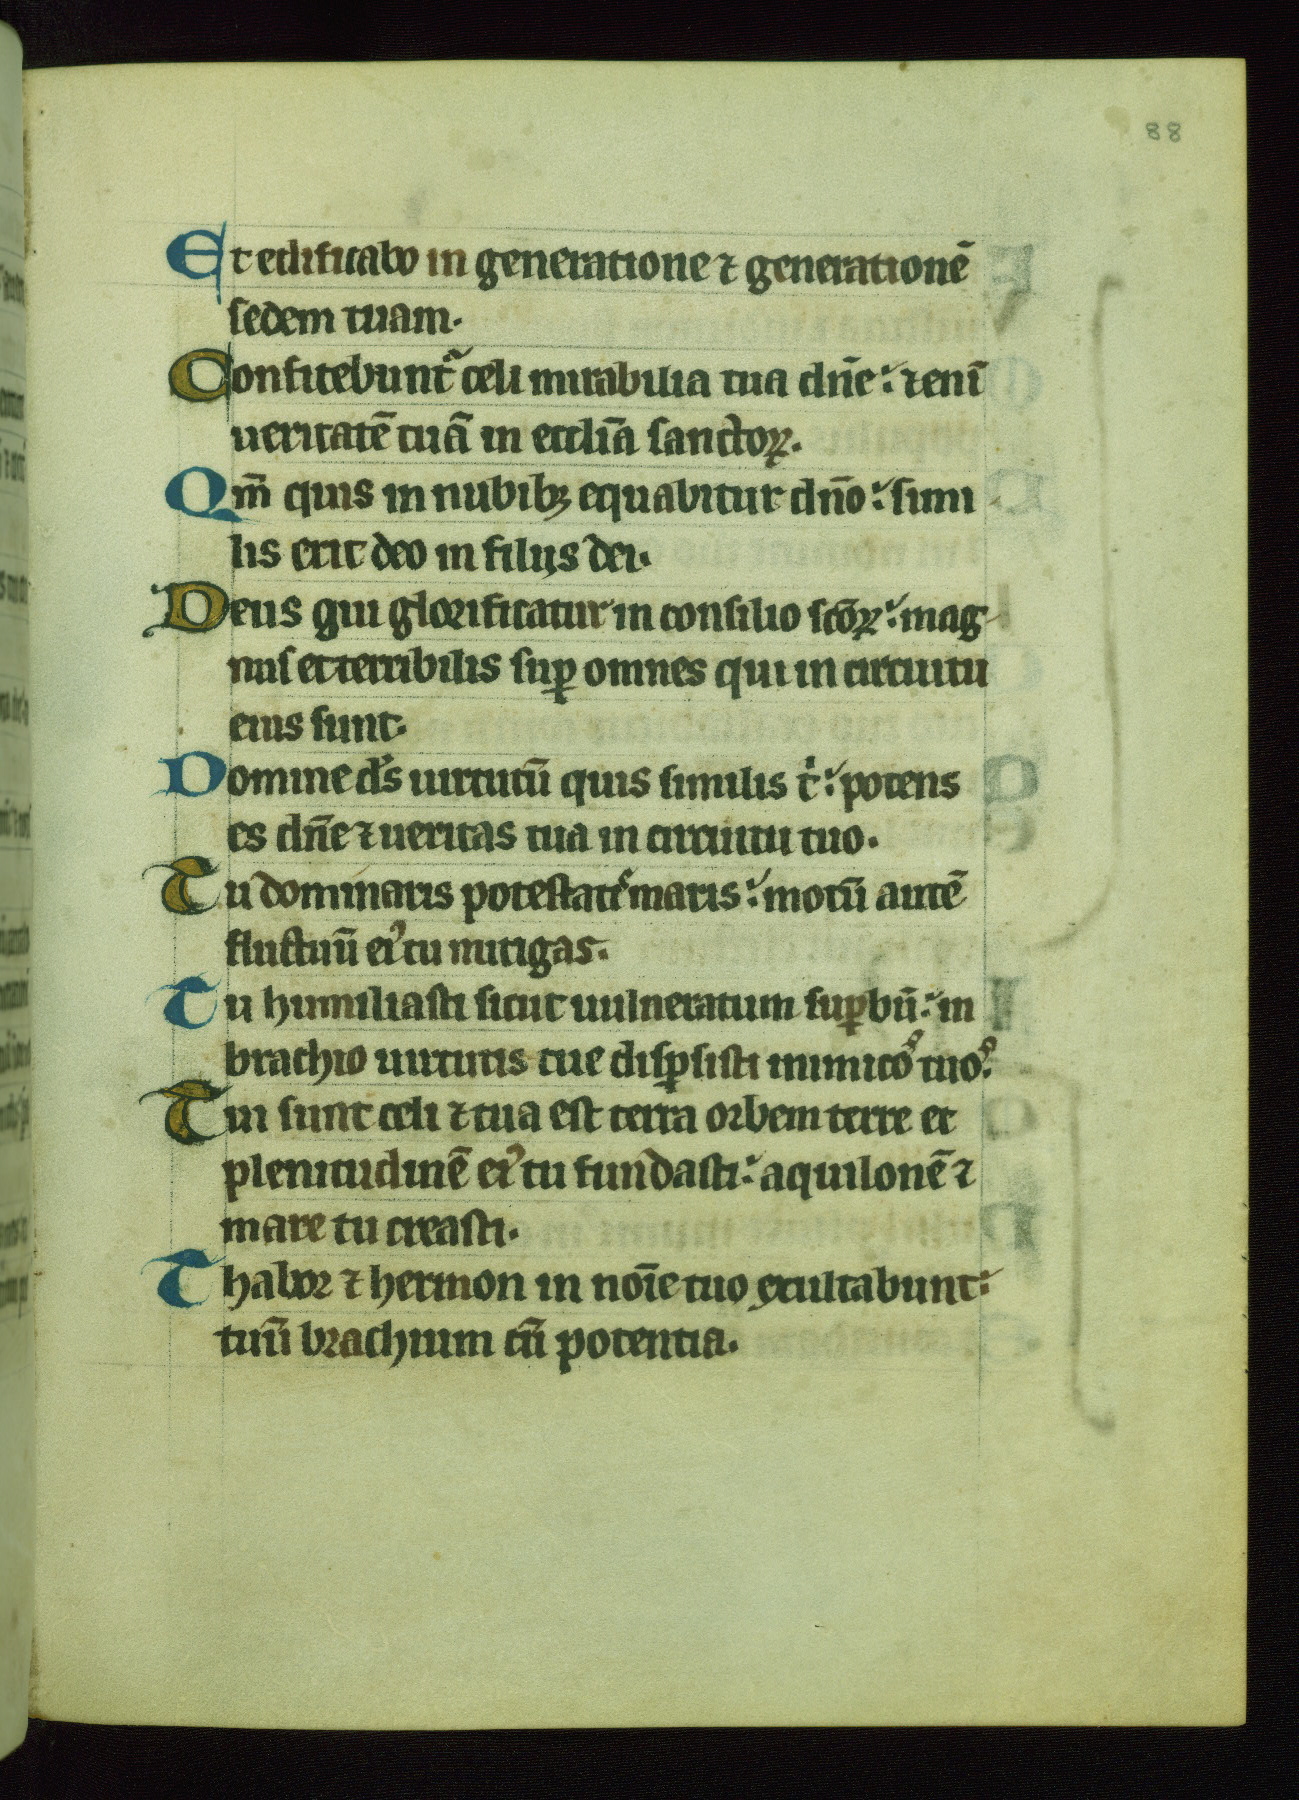 88
Et edificabo in generatione ⁊ generationē
sedem tuam.
Confitebunt᷑ celi mirabilia tua dn̄e: ⁊eni᷑
ueritatē tuā in eccl̄ia sanctoꝝ.
Qm̄ quis in nubibꝫ equabitur dn̄o: simi
lis erit deo in filijs dei.
Deus qui glorificatur in consilio sc̄oꝝ: mag
nus et terribilis suꝑ omnes qui in circuitu
eius sunt.
Domine ds̄ uirtutū quis similis tͥ: potens
es dn̄e ⁊ ueritas tua in circuitu tuo.
Tu dominaris potestatͥ maris: motū autē
fluctuū eiꝰ tu mitigas.
Tu humiliasti sicut uulneratum suꝑbū: in
brachio uirtutis tue disꝑsisti inimicoˢ tuoˢ.
Tui sunt celi ⁊ tua est terra orbem terre et
plenitudinē eiꝰ tu fundasti: aquilonē ⁊
mare tu creasti.
Thabor ⁊ hermon in noīe tuo exultabunt:
tuū brachium cū potentia.